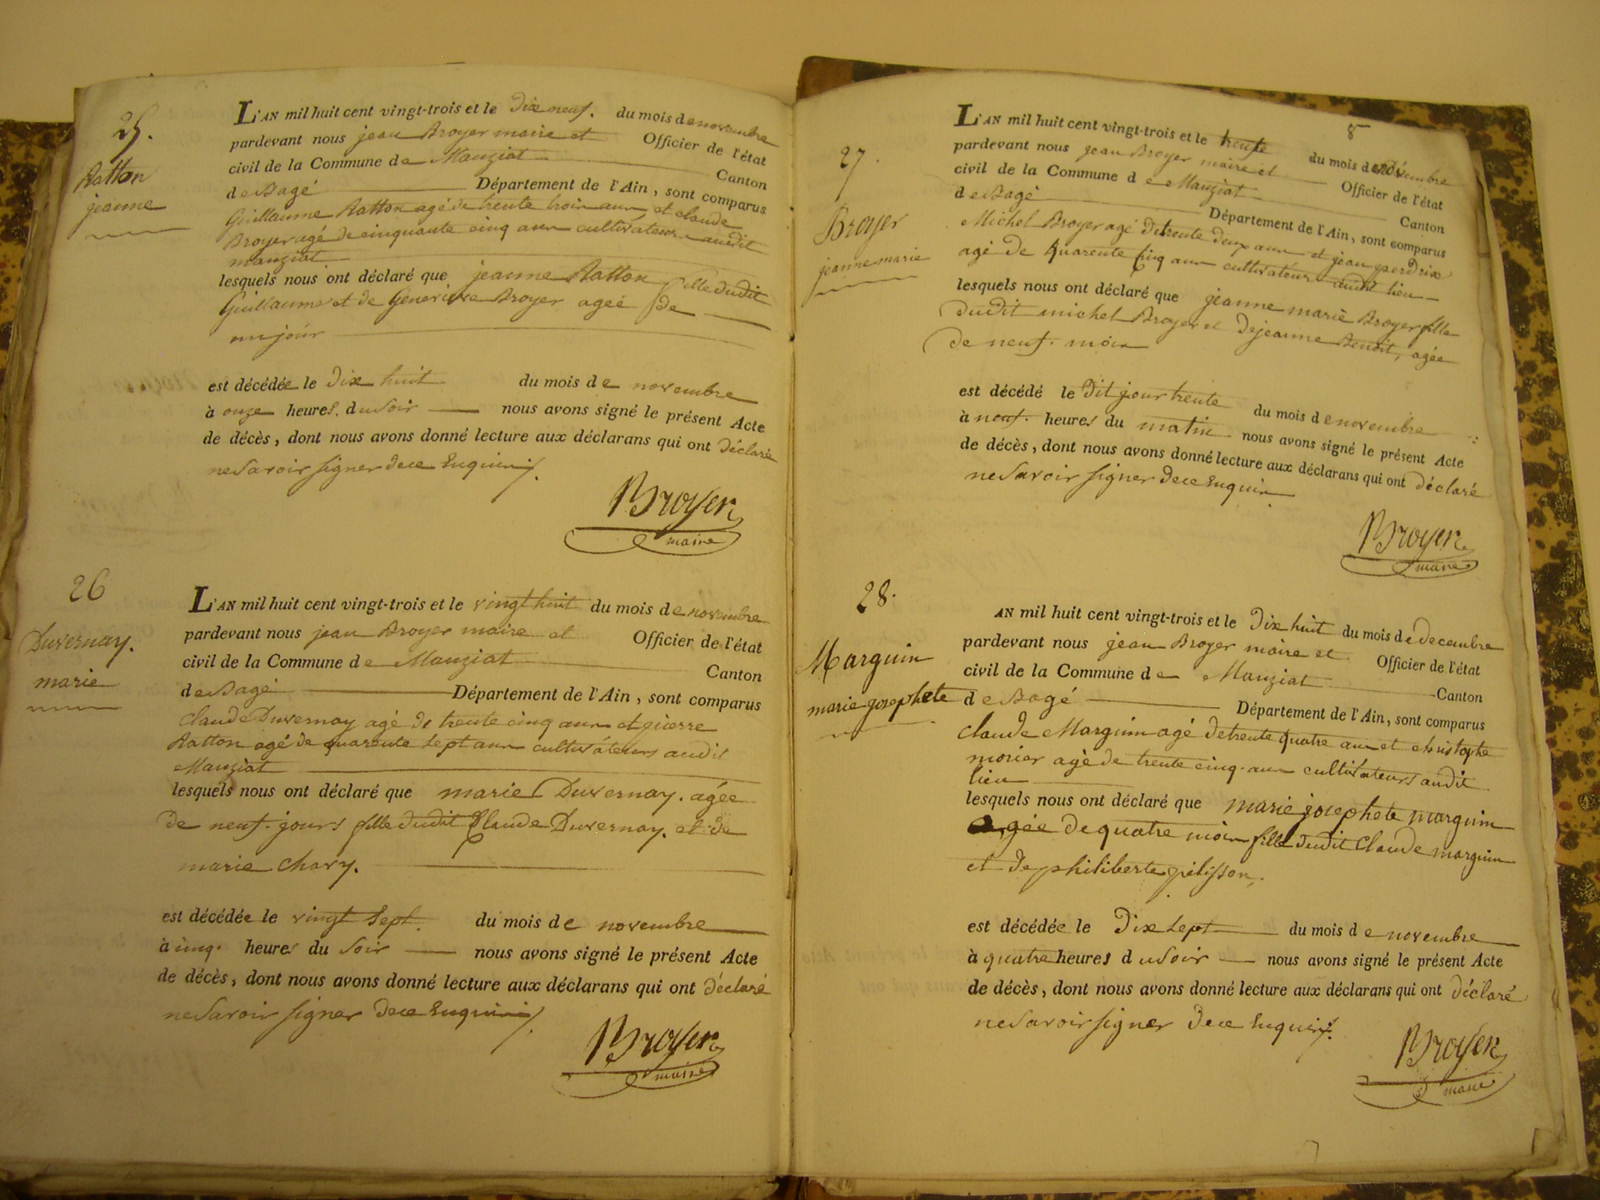 25.
Ratton
jeanne
L'AN mil huit cent vingt-trois et le dix neuf. du mois de novembre
pardevant nous jean Broyer maire et Officier de l'état
civil de la Commune de Manziat Canton
de Bagé Département de l'Ain, sont comparus
Guillaume Ratton agé de trente trois ans et claude
Broyer agé de cinquante cinq ans cultivateurs audit
manziat
lesquels nous ont déclaré que jeanne Ratton fille dudit
Guillaume et de Genevieve Broyer agée de
un jour
est décédée le dix huit du mois de novembre
à onze heures du soir nous avons signé le présent Acte
de décès, dont nous avons donné lecture aux déclarans qui ont déclaré
ne savoir signer de ce Enquis
Broyer
maire
26
Duvernay.
marie
L'AN mil huit cent vingt-trois et le vingt huit du mois de novembre
pardevant nous jean Broyer maire et Officier de l'état
civil de la Commune de Manziat Canton
de Bagé Département de l'Ain, sont comparus
Claude Duvernay agé de trente cinq ans et pierre
Ratton agé de quarente sept ans cultivateurs audit
Manziat
lesquels nous ont déclaré que marie Duvernay. agée
de neuf. jours fille dudit Claude Duvernay. et de
marie Chavy.
est décédée le vingt sept. du mois de novembre
à cinq. heures du soir nous avons signé le présent Acte
de décès, dont nous avons donné lecture aux déclarans qui ont déclaré
ne savoir signer de ce Enquis
Broyer
maire
8
27.
Broyer
jeanne marie
L'AN mil huit cent vingt-trois et le trente du mois de novembre
pardevant nous jean Broyer maire et Officier de l'état
civil de la Commune de Manziat Canton
de Bagé Département de l'Ain, sont comparus
Michel Broyer agé de trente deux ans et jean perdrix
agé de quarente cinq ans cultivateurs audit lieu
lesquels nous ont déclaré que jeanne marie Broyer fille
dudit michel Broyer et de jeanne Benoit, agée
de neuf. mois
est décédé le dit jour trente du mois de novembre
à neuf. heures du matin nous avons signé le présent Acte
de décès, dont nous avons donné lecture aux déclarans qui ont déclaré
ne savoir signer de ce Enquis
Broyer
maire
28.
Marguin
marie josephete
AN mil huit cent vingt-trois et le Dix huit du mois de decembre
pardevant nous jean Broyer maire et Officier de l'état
civil de la Commune de Manziat Canton
de Bagé Département de l'Ain, sont comparus
Claude Marguin agé de trente quatre ans et christophe
morier agé de trente cinq. ans cultivateurs audit
lieu
lesquels nous ont déclaré que marie josephete marguin
agée de quatre mois fille dudit Claude marguin
et de philiberte pelisson.
est décédée le Dix sept du mois de novembre
à quatre heures du soir nous avons signé le présent Acte
de décès, dont nous avons donné lecture aux déclarans qui ont déclaré
ne savoir signer de ce Enquis.
Broyer
maire